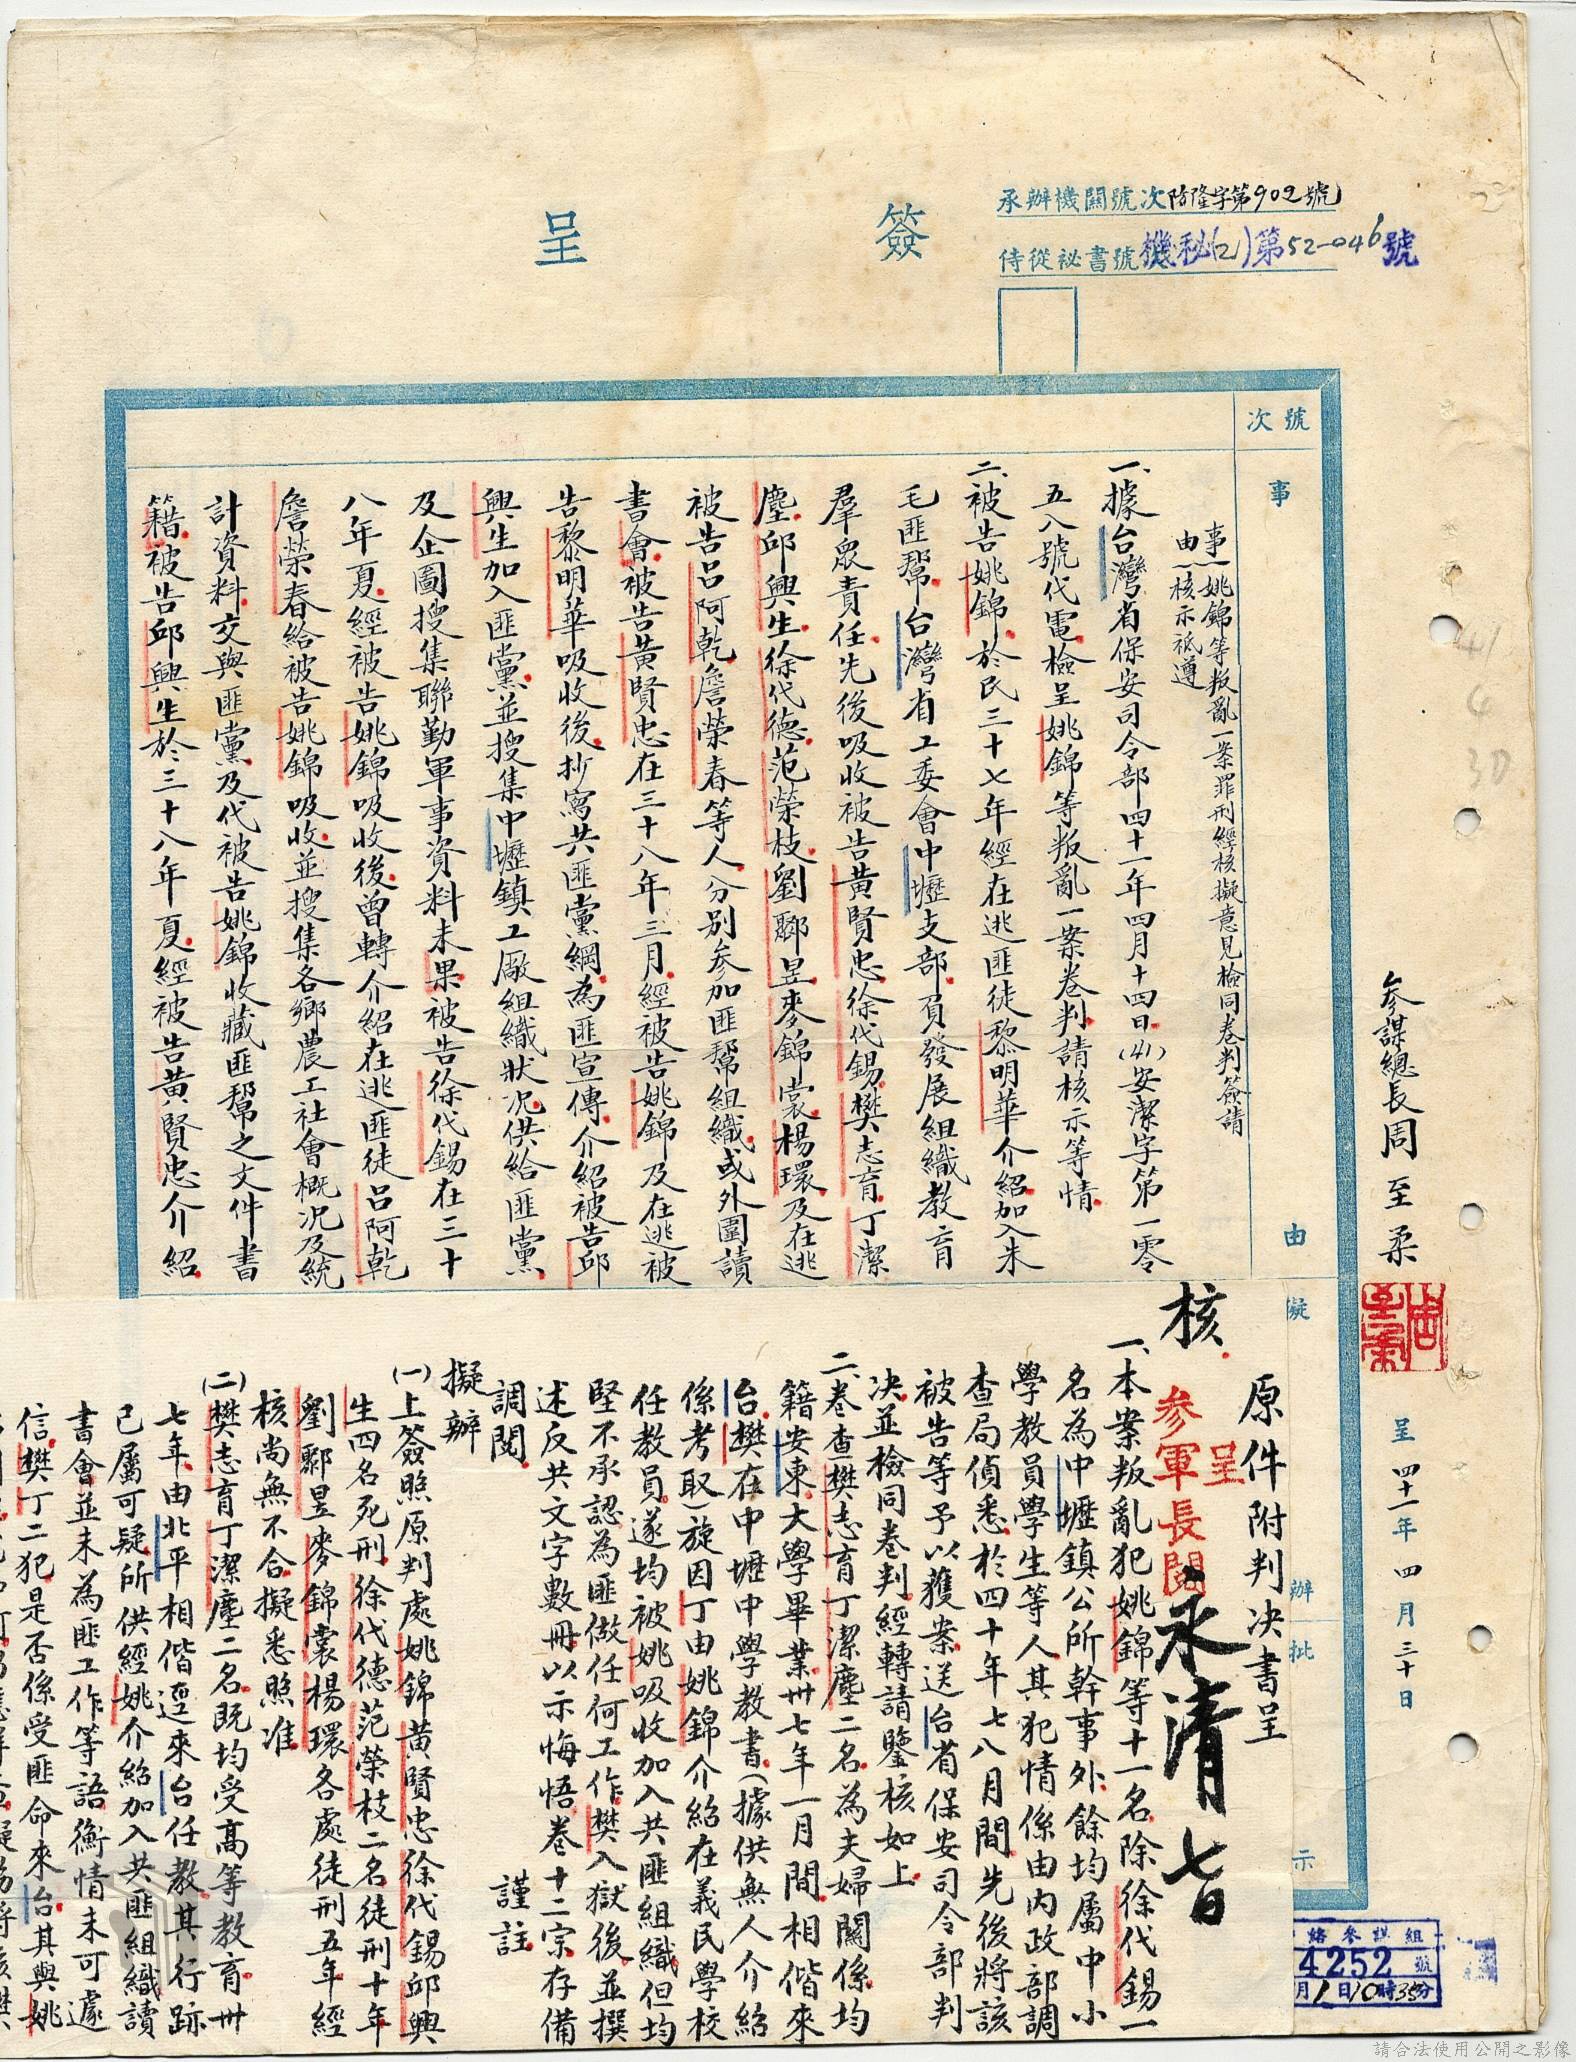 簽呈
承辦機關號次防隆字第902號
侍從祕書號機秘(乙)第52-046號
號次
事由
擬辦
批示
參謀總長周至柔
呈四十一年四月三十日
事由
姚錦等叛亂一案罪刑經核擬意見檢同卷判簽請
核示祇遵
一、據台灣省保安司令部四十一年四月十四日(41)安潔字第一零
五八號代電檢呈姚錦等叛亂一案卷判請核示等情
二、被告姚錦於民三十七年經在逃匪徒黎明華介紹加入朱
毛匪幫台灣省工委會中壢支部負發展組織教育
羣眾責任先後吸收被告黃賢忠徐代錫樊志育丁潔
塵邱興生徐代德范榮枝劉鄹昱麥錦裳楊環及在逃
被告呂阿乾詹榮春等人分別參加匪幫組織或外圍讀
書會被告黃賢忠在三十八年三月經被告姚錦及在逃被
告黎明華吸收後抄寫共匪黨綱為匪宣傳介紹被告邱
興生加入匪黨並搜集中壢鎮工廠組織狀況供給匪黨
及企圖搜集聯勤軍事資料未果被告徐代錫在三十
八年夏經被告姚錦吸收後曾轉介紹在逃匪徒呂阿乾
詹榮春給被告姚錦吸收並搜集各鄉農工社會概況及統
計資料交與匪黨及代被告姚錦收藏匪幫之文件書
籍被告邱興生於三十八年夏經被告黃賢忠介紹
原件附判決書呈
核
呈
參軍長閱
承清
七日
一、本案叛亂犯姚錦等十一名除徐代錫一
名為中壢鎮公所幹事外餘均屬中小
學教員學生等人其犯情係由內政部調
查局偵悉於四十年七八月間先後將該
被告等予以獲案送台省保安司令部判
決並檢同卷判經轉請鑒核如上
二、卷查樊志育丁潔塵二名為夫婦關係均
籍安東大學畢業卅七年一月間相偕來
台樊在中壢中學教書(據供無人介紹
係考取)旋因丁由姚錦介紹在義民學校
任教員遂均被姚吸收加入共匪組織但均
堅不承認為匪做任何工作樊入獄後並撰
述反共文字數冊以示悔悟卷十二宗存備
調閱 謹註
擬辦
(一)上簽照原判處姚錦黃賢忠徐代錫邱興
生四名死刑徐代德范榮枝二名徒刑十年
劉鄹昱麥錦裳楊環各處徒刑五年經
核尚無不合擬悉照准
(二)樊志育丁潔塵二名既均受高等教育卅
七年由北平相偕逕來台任教其行跡
已屬可疑所供經姚介紹加入共匪組織讀
書會並未為匪工作等語衡情未可遽
信樊丁二犯是否係受匪命來台其與姚
絡參謀組
4252號
月1日10時35分
41
4
30
請合法使用公開之影像